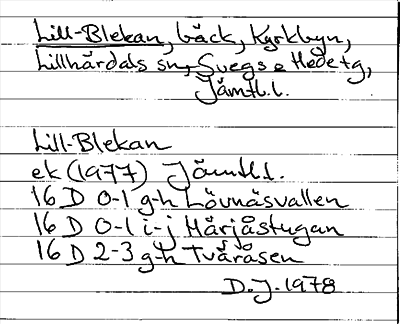 Lill-Blekan, bäck, Kyrkbyn,
Lillhärdals sn, Svegs o Hede tg,
Jämtl.l.
Lill-Blekan
ek (1977) Jämtl.l.
16 D 0-1 g-h Lövnäsvallen
16 D 0-1 i-j Mårjåstugan
16 D 2-3 g-h Tvåråsen
D.J. 1978